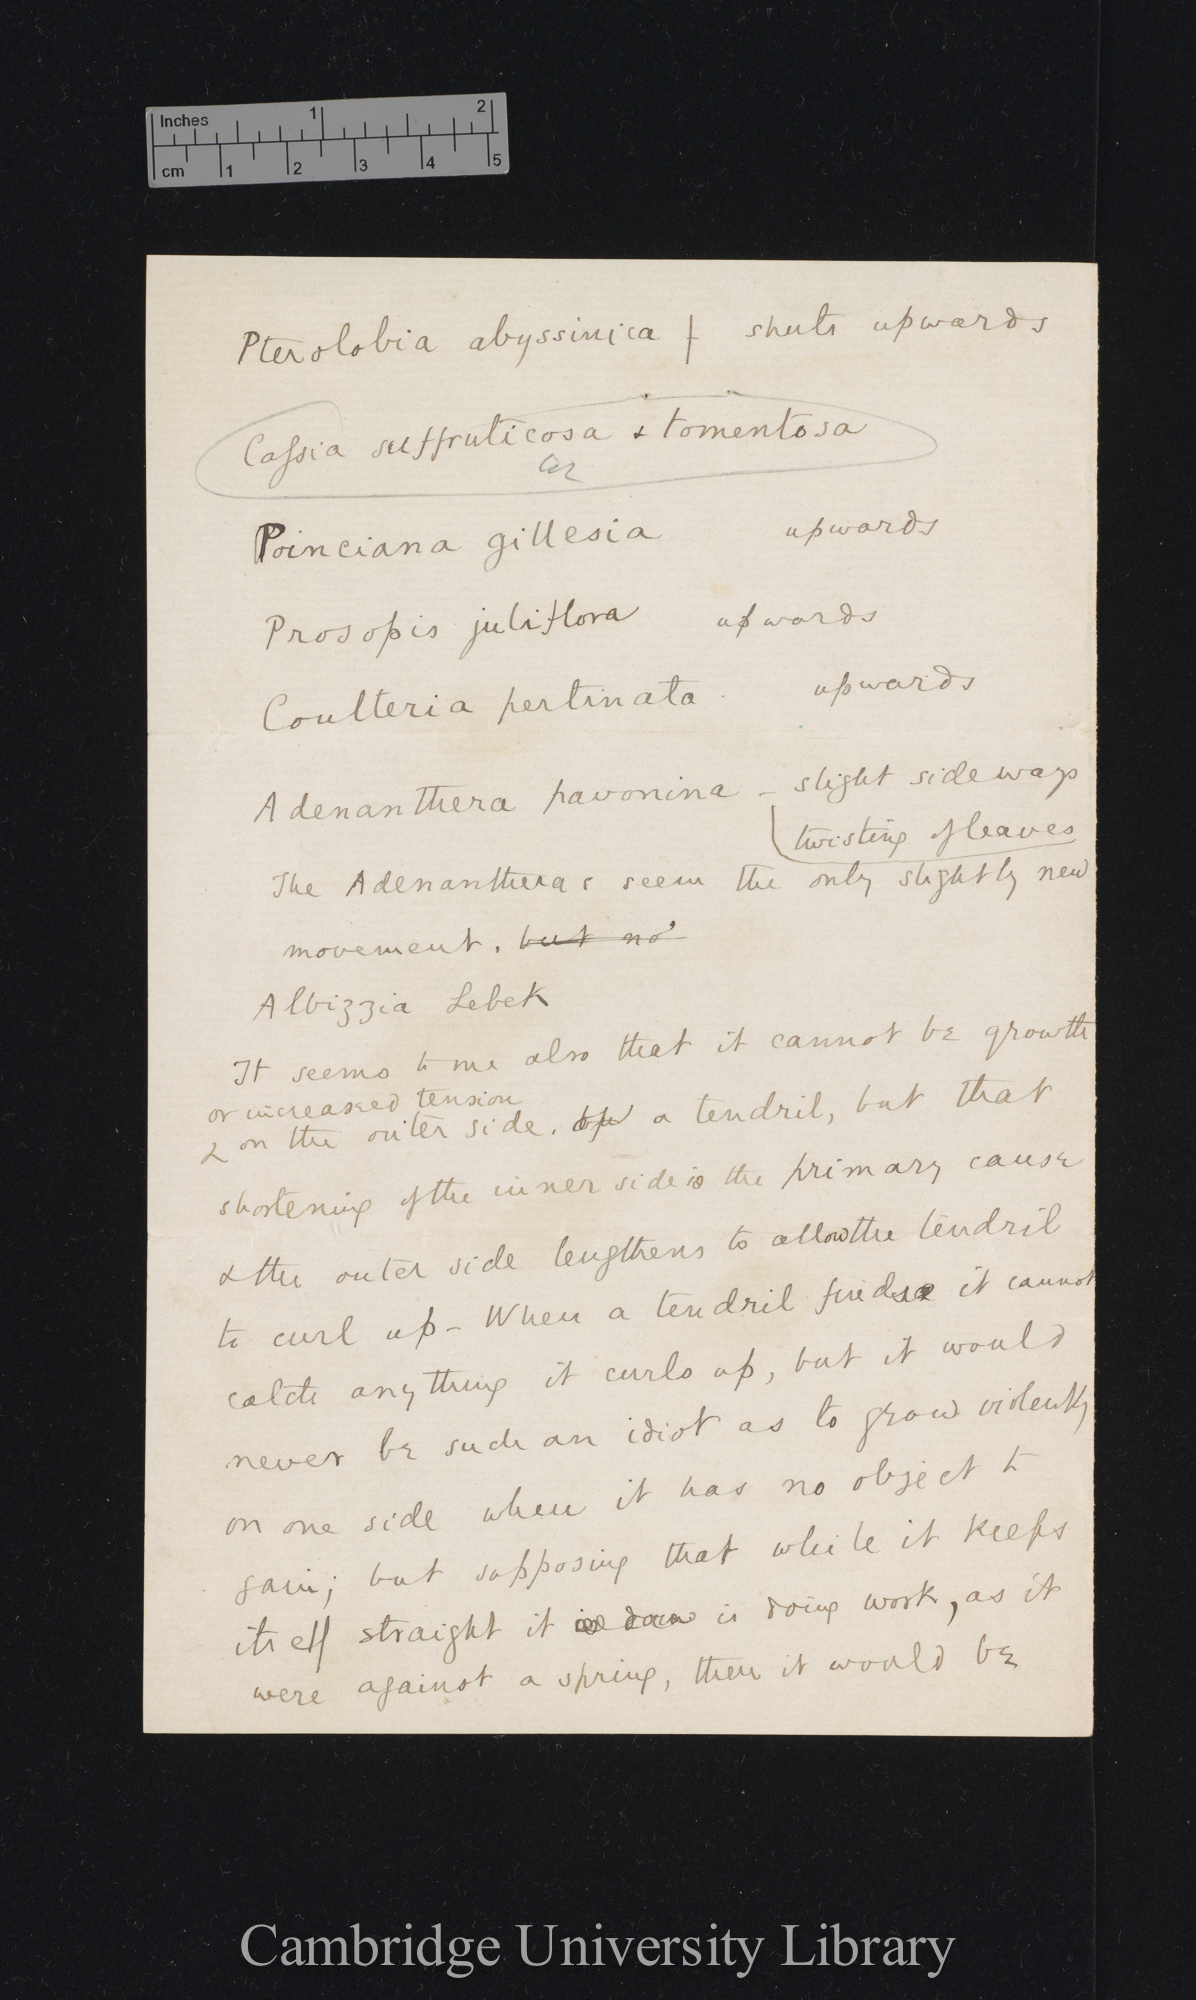 Inches 1 2
cm 1 2 3 4 5
Pterolobia abyssinica shuts upwards
Cassia suffruticosa & tomentosa
Poinciana gillesia upwards
Prosopis juliflora upwards
Coulteria pertinata upwards
Adenanthera pavonina – slight sideways
twisting of leaves
The Adenantheras seem the only slightly new
movement, but no
Albizzia Lebek
It seems to me also that it cannot be growth
or increased tension
& on the outer side. of a tendril, but that
shortening of the inner side is the primary cause
& the outer side lengthens to allow the tendril
to curl up – When a tendril finds it cannot
catch anything it curls up, but it would
never be such an idiot as to grow violently
on one side when it has no object to
gain; but supposing that while it keeps
itself straight it is is doing work, as it
were against a spring, then it would be
Cambridge University Library